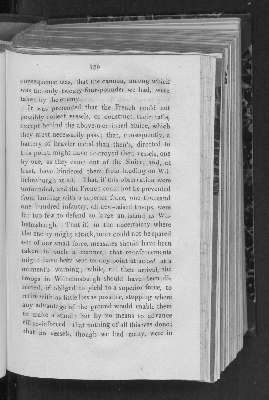 150
consequence was, that the cannon, among which
was the only twenty-four-pounder we had, were
taken by the enemy.
It was pretended that the French could not
possibly collect vessels, or construct their rafts,
except behind the above-mentioned Sluice, which
they must necessarily pass; that, consequently, a
battery of heavier metal than their's, directed to
this point might have destroyed their vessels, one
by one, as they came out of the Sluice, and, at
least, have hindered them from landing on Wil-
helmsburgh at all. That, if this observation were
unfounded, and the French could not be prevented
from landing with a superior force, one thousand
one hundred infantry, all new-raised troops, were
far too few to defend so large an island as Wil-
helmsburgh. That if, in the uncertainty where
the enemy might attack, more could not be spared
out of our small force, measures should have been
taken in such a manner, that reinforcements
might have been sent to any point attacked, at a
moment's warning; while, till their arrival, the
troops in Wilhelmsburgh should have been di-
rected, if obliged to yield to a superior force, to
retire with as little loss as possible, stopping where
any advantage of the ground would enable them
to make a stand; but by no means to advance
till re-inforced. That nothing of all this was done;
that no vessels, though we had many, were in